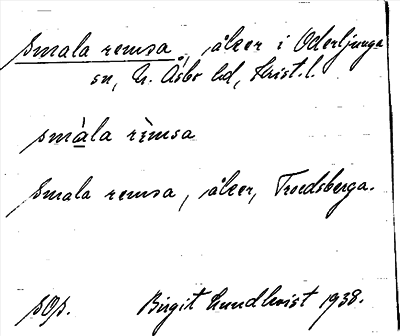 Smala remsa, åker i Oderljunga
sn, N. Åsbo hd, Krist. l.
smàla rèmsa
Smala remsa, åker, Troedsberga.
sOp. Birgit Lundkvist 1938.